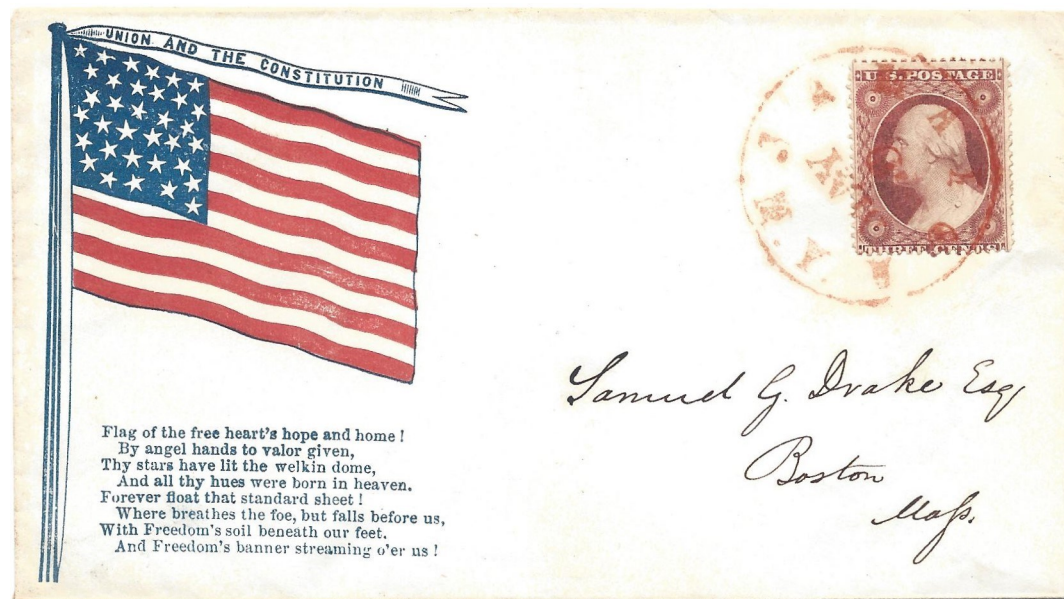 UNION AND THE CONSTITUTION
U.S. POSTAGE
THREE CENTS
Samuel G. Drake Esq
Boston
Mass.
Flag of the free heart's hope and home !
By angel hands to valor given,
Thy stars have lit the welkin dome,
And all thy hues were born in heaven.
Forever float that standard sheet !
Where breathes the foe, but falls before us,
With Freedom's soil beneath our feet.
And Freedom's banner streaming o'er us !